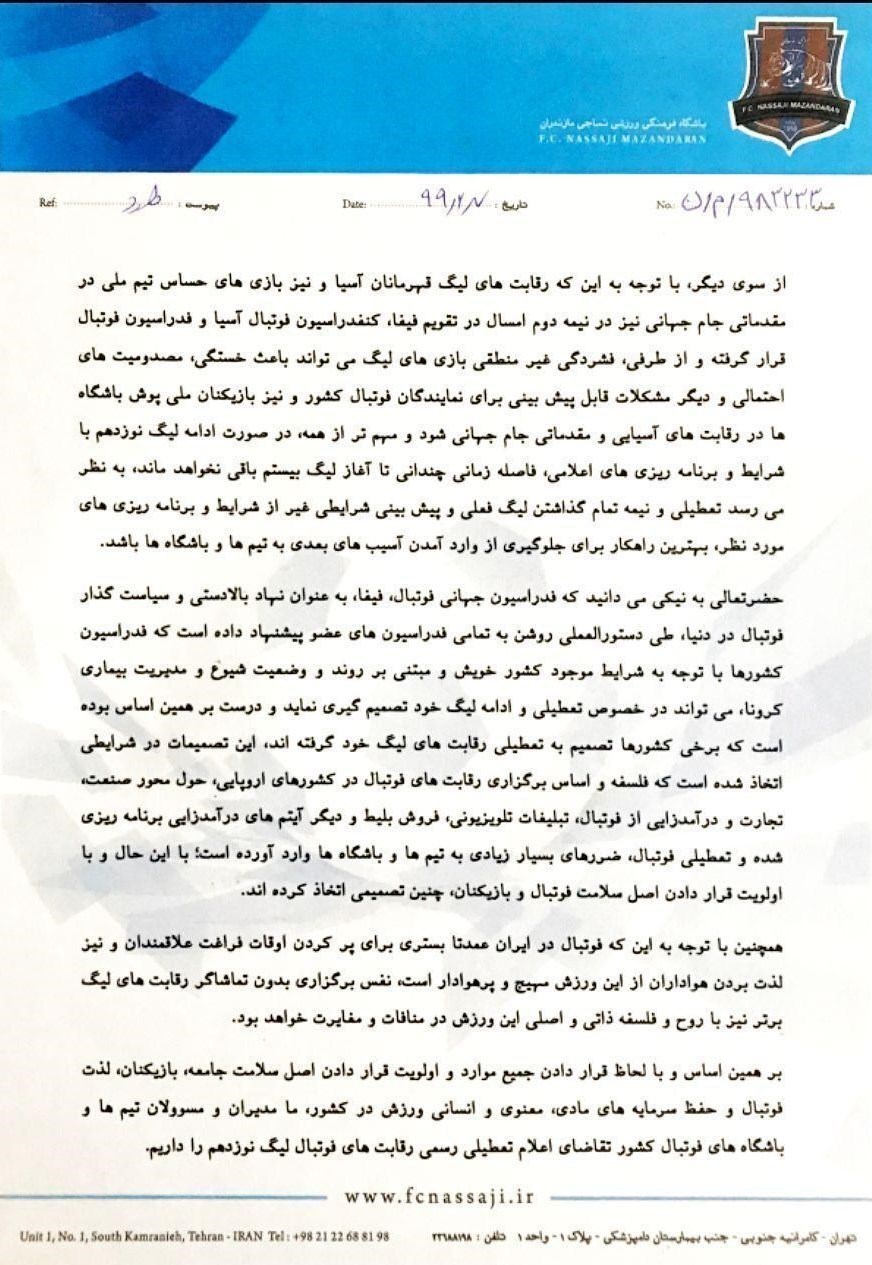 F.C. NASSAJI MAZANDARAN
باشگاه فرهنگی ورزشی نساجی مازندران
F.C. NASSAJI MAZANDARAN
شماره: ۹۸۳۲۳۳/م/ن No.
تاریخ: Date:
پیوست: Ref:
از سوی دیگر، با توجه به این که رقابت های لیگ قهرمانان آسیا و نیز بازی های حساس تیم ملی در
مقدماتی جام جهانی نیز در نیمه دوم امسال در تقویم فیفا، کنفدراسیون فوتبال آسیا و فدراسیون فوتبال
قرار گرفته و از طرفی، فشردگی غیر منطقی بازی های لیگ می تواند باعث خستگی، مصدومیت های
احتمالی و دیگر مشکلات قابل پیش بینی برای نمایندگان فوتبال کشور و نیز بازیکنان ملی پوش باشگاه
ها در رقابت های آسیایی و مقدماتی جام جهانی شود و مهم تر از همه، در صورت ادامه لیگ نوزدهم با
شرایط و برنامه ریزی های اعلامی، فاصله زمانی چندانی تا آغاز لیگ بیستم باقی نخواهد ماند، به نظر
می رسد تعطیلی و نیمه تمام گذاشتن لیگ فعلی و پیش بینی شرایطی غیر از شرایط و برنامه ریزی های
مورد نظر، بهترین راهکار برای جلوگیری از وارد آمدن آسیب های بعدی به تیم ها و باشگاه ها باشد.
حضرتعالی به نیکی می دانید که فدراسیون جهانی فوتبال، فیفا، به عنوان نهاد بالادستی و سیاست گذار
فوتبال در دنیا، طی دستورالعملی روشن به تمامی فدراسیون های عضو پیشنهاد داده است که فدراسیون
کشورها با توجه به شرایط موجود کشور خویش و مبتنی بر روند و وضعیت شیوع و مدیریت بیماری
کرونا، می تواند در خصوص تعطیلی و ادامه لیگ خود تصمیم گیری نماید و درست بر همین اساس بوده
است که برخی کشورها تصمیم به تعطیلی رقابت های لیگ خود گرفته اند، این تصمیمات در شرایطی
اتخاذ شده است که فلسفه و اساس برگزاری رقابت های فوتبال در کشورهای اروپایی، حول محور صنعت،
تجارت و درآمدزایی از فوتبال، تبلیغات تلویزیونی، فروش بلیط و دیگر آیتم های درآمدزایی برنامه ریزی
شده و تعطیلی فوتبال، ضررهای بسیار زیادی به تیم ها و باشگاه ها وارد آورده است؛ با این حال و با
اولویت قرار دادن اصل سلامت فوتبال و بازیکنان، چنین تصمیمی اتخاذ کرده اند.
همچنین با توجه به این که فوتبال در ایران عمدتا بستری برای پر کردن اوقات فراغت علاقمندان و نیز
لذت بردن هواداران از این ورزش مهیج و پرهوادار است، نفس برگزاری بدون تماشاگر رقابت های لیگ
برتر نیز با روح و فلسفه ذاتی و اصلی این ورزش در منافات و مغایرت خواهد بود.
بر همین اساس و با لحاظ قرار دادن جمیع موارد و اولویت قرار دادن اصل سلامت جامعه، بازیکنان، لذت
فوتبال و حفظ سرمایه های مادی، معنوی و انسانی ورزش در کشور، ما مدیران و مسوولان تیم ها و
باشگاه های فوتبال کشور تقاضای اعلام تعطیلی رسمی رقابت های فوتبال لیگ نوزدهم را داریم.
www.fcnassaji.ir
تهران - کامرانیه جنوبی - جنب بیمارستان دامپزشکی - پلاک ۱ - واحد ۱ تلفن : ۲۲۶۸۸۱۹۸
Unit 1, No. 1, South Kamranieh, Tehran - IRAN Tel : +98 21 22 68 81 98